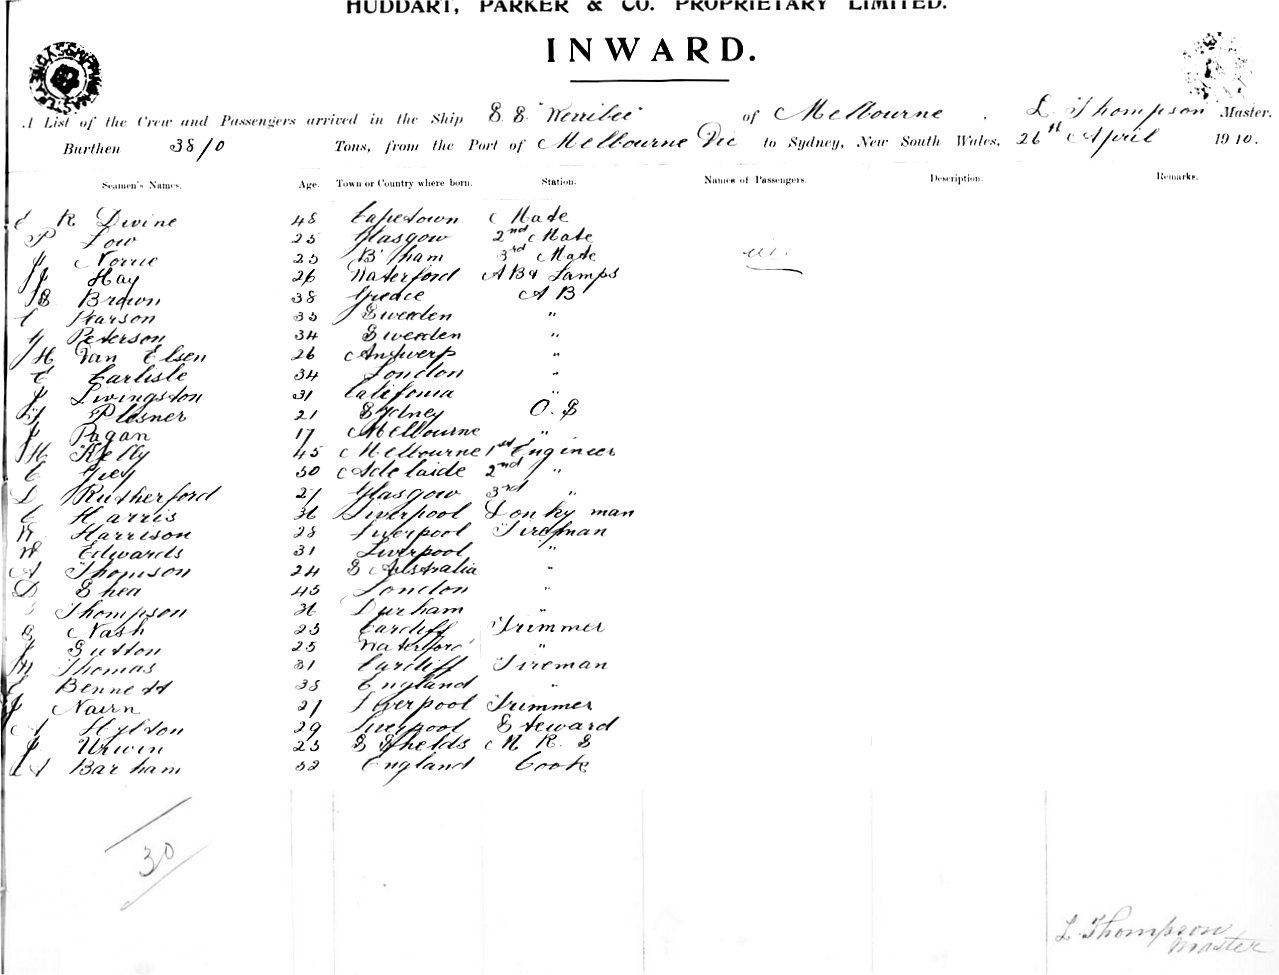 HUDDART, PARKER & CO. PROPRIETARY LIMITED.
INWARD.
A List of the Crew and Passengers arrived in the Ship S.S. "Werribee" of Melbourne. L Thompson Master.
Burthen 3810 Tons, from the Port of Melbourne Vic to Sydney, New South Wales, 26st April 1910.
Seamen's Names. Age. Town or Country where born. Station. Names of Passengers. Description. Remarks.
E R Divine 48 Capetown Mate
P Low 25 Glasgow 2nd Mate
J Norrie 25 B'ham 3rd Mate
J Hay 26 Waterford AB & Lamps
J B Brown 38 Greece A B
C Pearson 35 Sweden "
G Peterson 34 Sweden "
J H Van Elsen 26 Antwerp "
C Carlisle 34 London "
J Livingston 31 California "
Plesner 21 Sydney O.S
J Pagan 17 Melbourne "
J H Kelly 45 Melbourne 1st Engineer
C Grey 30 Adelaide 2nd "
D Rutherford 27 Glasgow 3rd "
C Harris 36 Liverpool Donkyman
R Harrison 28 Liverpool Fireman
W Edwards 31 Liverpool "
A Thomson 24 S Australia "
D Shea 45 London "
Thompson 36 Durham "
S Nash 23 Cardiff Trimmer
J Sutton 25 Waterford "
M Thomas 31 Cardiff Fireman
C Bennett 38 England "
J Nairn 27 Liverpool Trimmer
A Hylton 29 Liverpool Steward
J Urwin 23 S Shelds M R S
Barham 52 England Cook
30
L. Thompson
Master